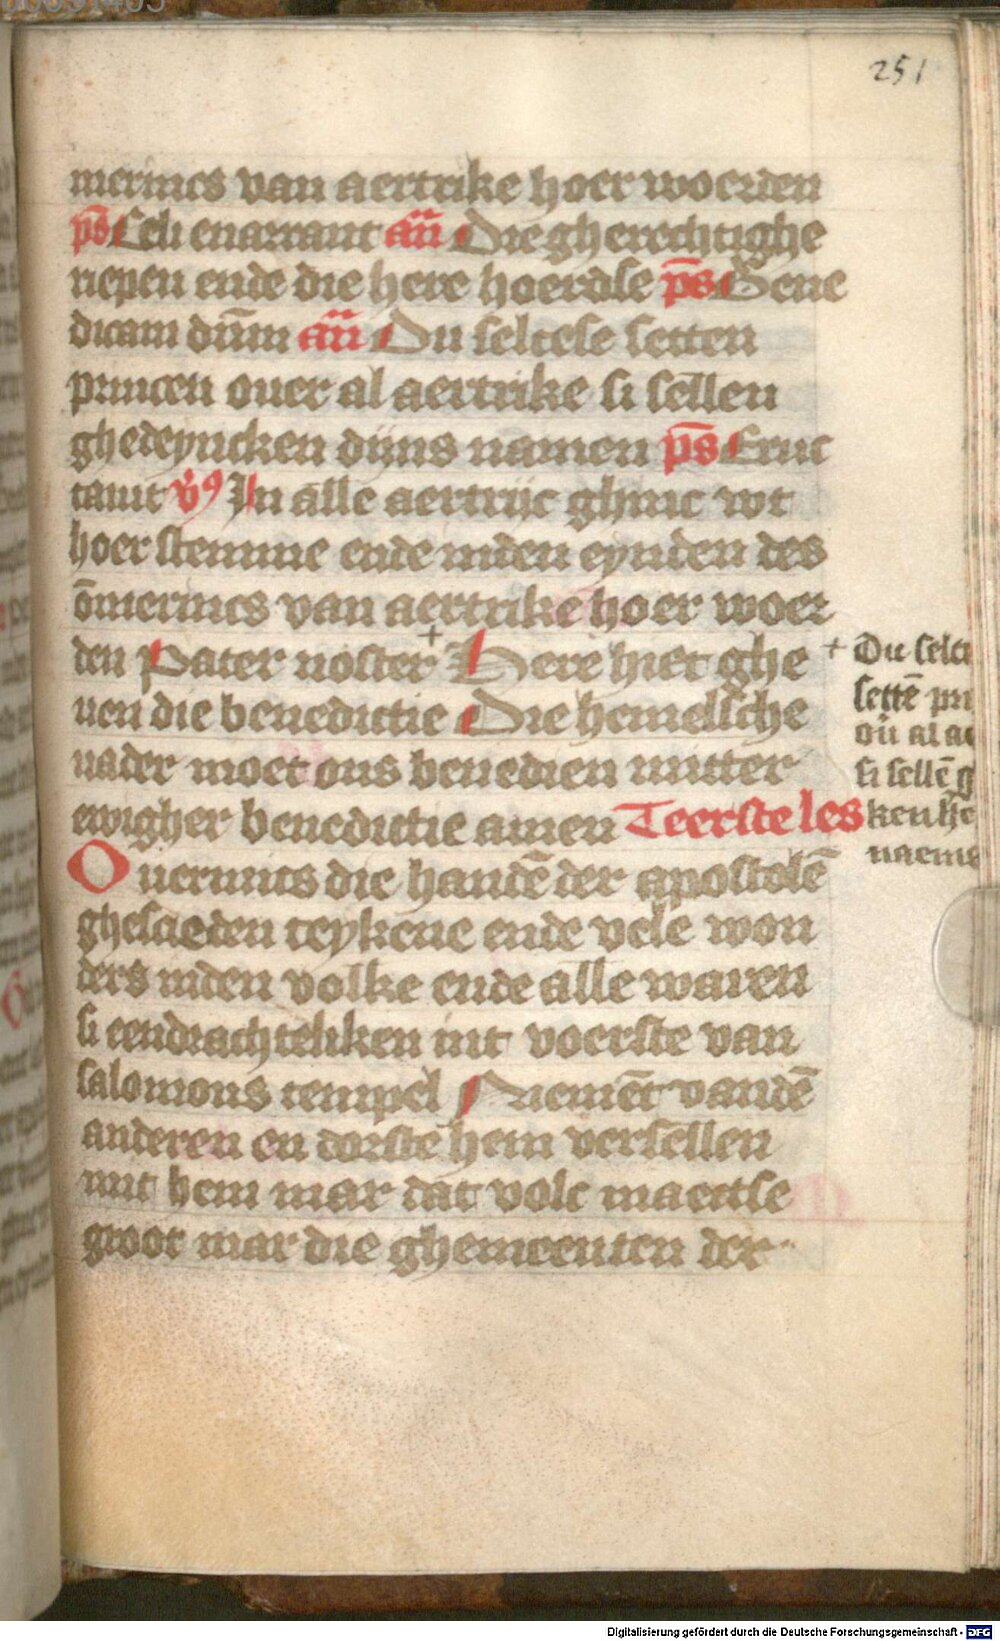 251
merincs van aertrike hoer woerden
ps̄ Celi enarrant añ Die gherechtighe
riepen ende die here hoerdse ps̄ Bene
dicam dn̄m añ Du seltese setten
princen ouer al aertrike si sellen
ghedeyncken dijns namen ps̄ Eruc
tauit v̾ In alle aertrijc ghinc wt
hoer stemme ende inden eynden des
ōmerincs van aertrike hoer woer
den Pater noster + Here hiet ghe
uen die benedictie Die hemelsche
uader moet ons benedien mitter
ewigher benedictie amen Teerste les
Ouermits die handē der apostolē
ghescieden teykene ende vele won
ders inden volke ende alle waren
si eendrachteliken int voerste van
salomons tempel Niemēt vandē
anderen en dorste hem versellen
mit hem mar dat volc maectse
groot mar die ghemeenten der
+ Du selt
settē pri
ou̅ al ae
si sellē g
ken he
naems
Digitalisierung gefördert durch die Deutsche Forschungsgemeinschaft - DFG